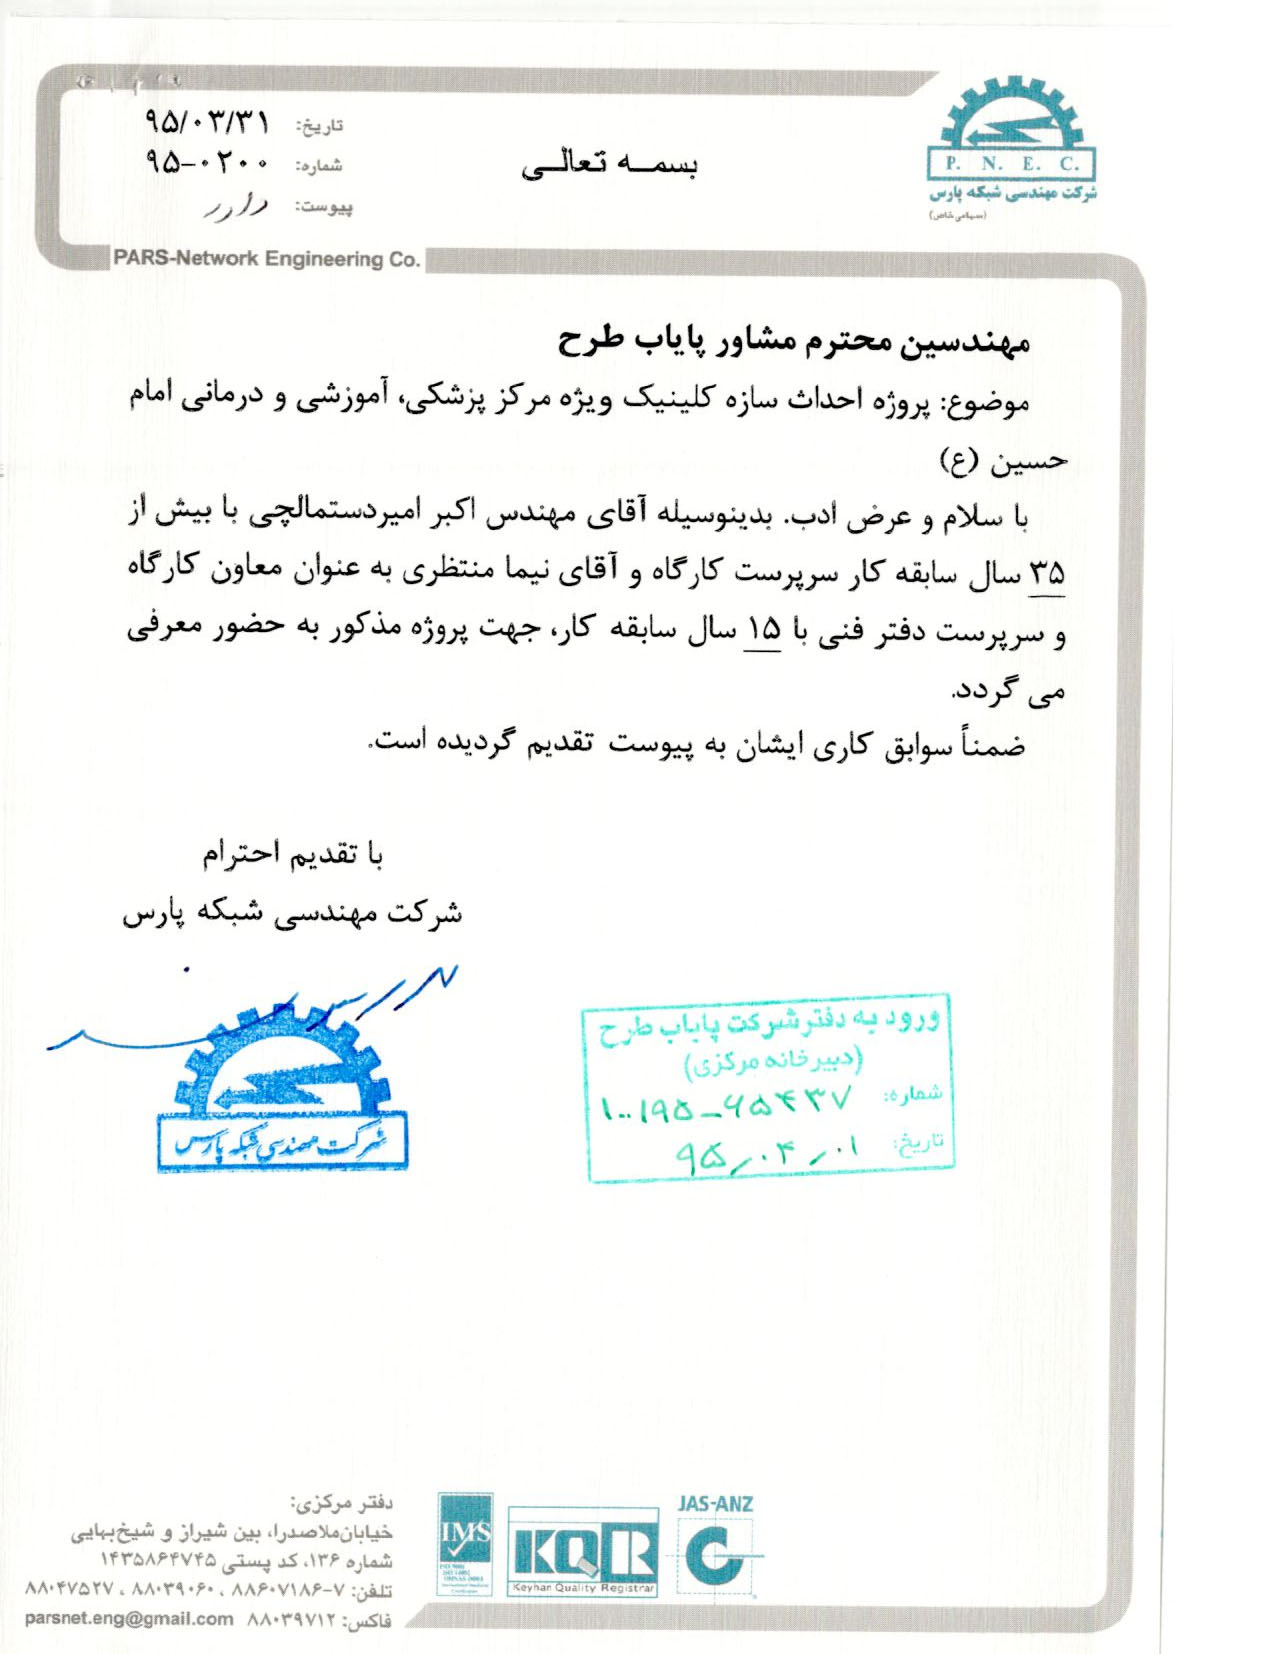 تاریخ: ۹۵/۰۳/۳۱
شماره: ۹۵-۰۲۰۰
پیوست: دارد
بسمه تعالی
P. N. E. C.
شرکت مهندسی شبکه پارس
(سهامی خاص)
PARS-Network Engineering Co.
مهندسین محترم مشاور پایاب طرح
موضوع: پروژه احداث سازه کلینیک ویژه مرکز پزشکی، آموزشی و درمانی امام
حسین (ع)
با سلام و عرض ادب. بدینوسیله آقای مهندس اکبر امیردستمالچی با بیش از
۳۵ سال سابقه کار سرپرست کارگاه و آقای نیما منتظری به عنوان معاون کارگاه
و سرپرست دفتر فنی با ۱۵ سال سابقه کار، جهت پروژه مذکور به حضور معرفی
می گردد.
ضمناً سوابق کاری ایشان به پیوست تقدیم گردیده است.
با تقدیم احترام
شرکت مهندسی شبکه پارس
شرکت مهندسی شبکه پارس
ورود به دفتر شرکت پایاب طرح
(دبیرخانه مرکزی)
شماره: ۱۰۰۱۹۵-۶۵۴۳۷
تاریخ: ۹۵/۰۴/۰۱
دفتر مرکزی:
خیابان ملاصدرا، بین شیراز و شیخ‌بهایی
شماره ۱۳۶، کد پستی ۱۴۳۵۸۶۴۷۴۵
تلفن: ۷-۸۸۶۰۷۱۸۶ ، ۸۸۰۳۹۰۶۰ ، ۸۸۰۴۷۵۲۷
فاکس: ۸۸۰۳۹۷۱۲ parsnet.eng@gmail.com
IMS
KQR
Keyhan Quality Registrar
JAS-ANZ